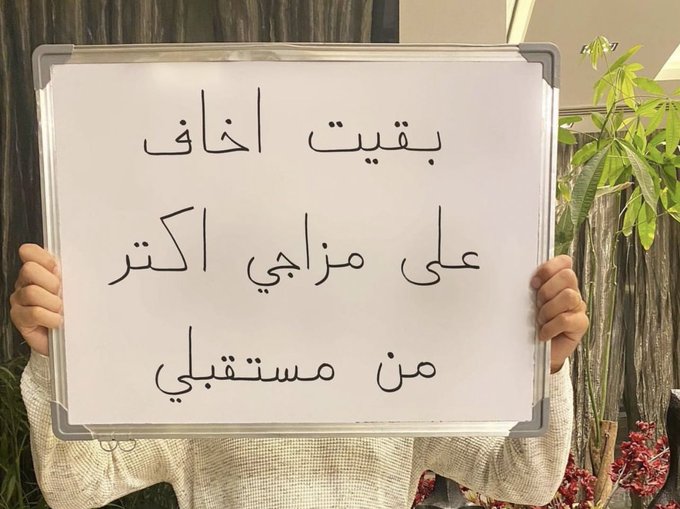 بقيت اخاف
على مزاجي اكتر
من مستقبلي